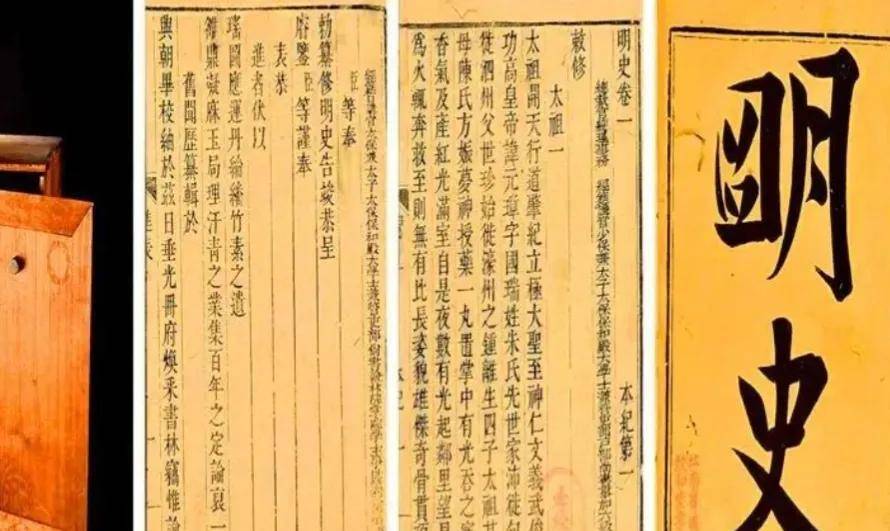 明史
明史卷一 本紀第一
總裁官總理事務 經筵講官少保兼太子太保保和殿大學士兼管吏部戶部尚書事加六
敕修
太祖一
太祖開天行道肇紀立極大聖至神仁文義武俊
功高皇帝諱元璋字國瑞姓朱氏先世家沛徙句
徙泗州父世珍始徙濠州之鍾離生四子太祖其
母陳氏方娠夢神授藥一丸置掌中有光吞之寤
香氣及產紅光滿室自是夜數有光起鄰里望見
為火輒奔救至則無有比長姿貌雄傑奇骨貫
經筵日講官太保兼太子太保保和殿大學士兼管吏部尚書翰林院掌院學士事
臣等奉
勅纂修明史告竣恭呈
鑒臣等謹奉
表恭
進者伏以
瑞圖應運丹綸繼竹素之遺
鼎凝庥玉局理汗青之業集百年之定論裒一
舊聞歷纂輯於
興朝畢校紬於茲日垂光冊府煥采書林竊惟論